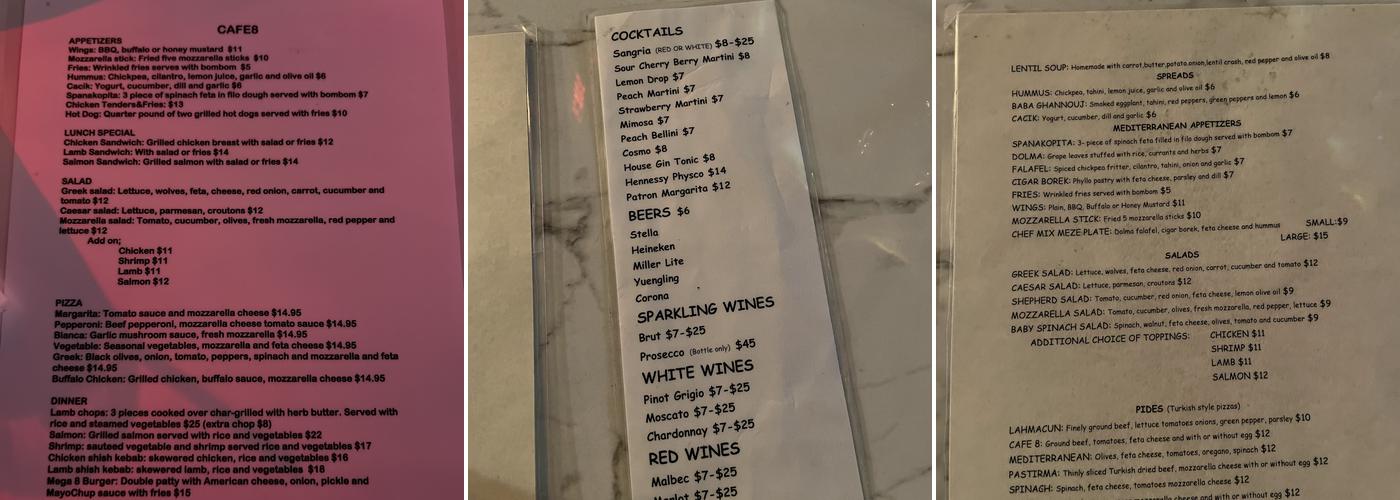 CAFE8
APPETIZERS
Wings: BBQ, buffalo or honey mustard $11
Mozzarella stick: Fried five mozzarella sticks $10
Fries: Wrinkled fries serves with bombom $5
Hummus: Chickpea, cilantro, lemon juice, garlic and olive oil $6
Cacik: Yogurt, cucumber, dill and garlic $6
Spanakopita: 3 piece of spinach feta in filo dough served with bombom $7
Chicken Tenders&Fries: $13
Hot Dog: Quarter pound of two grilled hot dogs served with fries $10
LUNCH SPECIAL
Chicken Sandwich: Grilled chicken breast with salad or fries $12
Lamb Sandwich: With salad or fries $14
Salmon Sandwich: Grilled salmon with salad or fries $14
SALAD
Greek salad: Lettuce, wolves, feta, cheese, red onion, carrot, cucumber and
tomato $12
Caesar salad: Lettuce, parmesan, croutons $12
Mozzarella salad: Tomato, cucumber, olives, fresh mozzarella, red pepper and
lettuce $12
Add on;
Chicken $11
Shrimp $11
Lamb $11
Salmon $12
PIZZA
Margarita: Tomato sauce and mozzarella cheese $14.95
Pepperoni: Beef pepperoni, mozzarella cheese tomato sauce $14.95
Bianca: Garlic mushroom sauce, fresh mozzarella $14.95
Vegetable: Seasonal vegetables, mozzarella and feta cheese $14.95
Greek: Black olives, onion, tomato, peppers, spinach and mozzarella and feta
cheese $14.95
Buffalo Chicken: Grilled chicken, buffalo sauce, mozzarella cheese $14.95
DINNER
Lamb chops: 3 pieces cooked over char-grilled with herb butter. Served with
rice and steamed vegetables $25 (extra chop $8)
Salmon: Grilled salmon served with rice and vegetables $22
Shrimp: sauteed vegetable and shrimp served rice and vegetables $17
Chicken shish kebab: skewered chicken, rice and vegetables $16
Lamb shish kebab: skewered lamb, rice and vegetables $18
Mega 8 Burger: Double patty with American cheese, onion, pickle and
MayoChup sauce with fries $15
COCKTAILS
Sangria (RED OR WHITE) $8-$25
Sour Cherry Berry Martini $8
Lemon Drop $7
Peach Martini $7
Strawberry Martini $7
Mimosa $7
Peach Bellini $7
Cosmo $8
House Gin Tonic $8
Hennessy Physco $14
Patron Margarita $12
BEERS $6
Stella
Heineken
Miller Lite
Yuengling
Corona
SPARKLING WINES
Brut $7-$25
Prosecco (Bottle only) $45
WHITE WINES
Pinot Grigio $7-$25
Moscato $7-$25
Chardonnay $7-$25
RED WINES
Malbec $7-$25
Merlot $7-$25
LENTIL SOUP: Homemade with carrot,butter,potato,onion,lentil crash, red pepper and olive oil $8
SPREADS
HUMMUS: Chickpea, tahini, lemon juice, garlic and olive oil $6
BABA GHANNOUJ: Smoked eggplant, tahini, red peppers, green peppers and lemon $6
CACIK: Yogurt, cucumber, dill and garlic $6
MEDITERRANEAN APPETIZERS
SPANAKOPITA: 3- piece of spinach feta filled in filo dough served with bombom $7
DOLMA: Grape leaves stuffed with rice, currants and herbs $7
FALAFEL: Spiced chickpea fritter, cilantro, tahini, onion and garlic $7
CIGAR BOREK: Phyllo pastry with feta cheese, parsley and dill $7
FRIES: Wrinkled fries served with bombom $5
WINGS: Plain, BBQ, Buffalo or Honey Mustard $11
MOZZARELLA STICK: Fried 5 mozzarella sticks $10
CHEF MIX MEZE PLATE: Dolma falafel, cigar borek, feta cheese and hummus SMALL:$9
LARGE: $15
SALADS
GREEK SALAD: Lettuce, wolves, feta cheese, red onion, carrot, cucumber and tomato $12
CAESAR SALAD: Lettuce, parmesan, croutons $12
SHEPHERD SALAD: Tomato, cucumber, red onion, feta cheese, lemon olive oil $9
MOZZARELLA SALAD: Tomato, cucumber, olives, fresh mozzarella, red pepper, lettuce $9
BABY SPINACH SALAD: Spinach, walnut, feta cheese, olives, tomato and cucumber $9
ADDITIONAL CHOICE OF TOPPINGS: CHICKEN $11
SHRIMP $11
LAMB $11
SALMON $12
PIDES (Turkish style pizzas)
LAHMACUN: Finely ground beef, lettuce tomatoes onions, green pepper, parsley $10
CAFE 8: Ground beef, tomatoes, feta cheese and with or without egg $12
MEDITERRANEAN: Olives, feta cheese, tomatoes, oregano, spinach $12
PASTIRMA: Thinly sliced Turkish dried beef, mozzarella cheese with or without egg $12
SPINAGH: Spinach, feta cheese, tomatoes mozzarella cheese $12
cheese and with or without egg $12